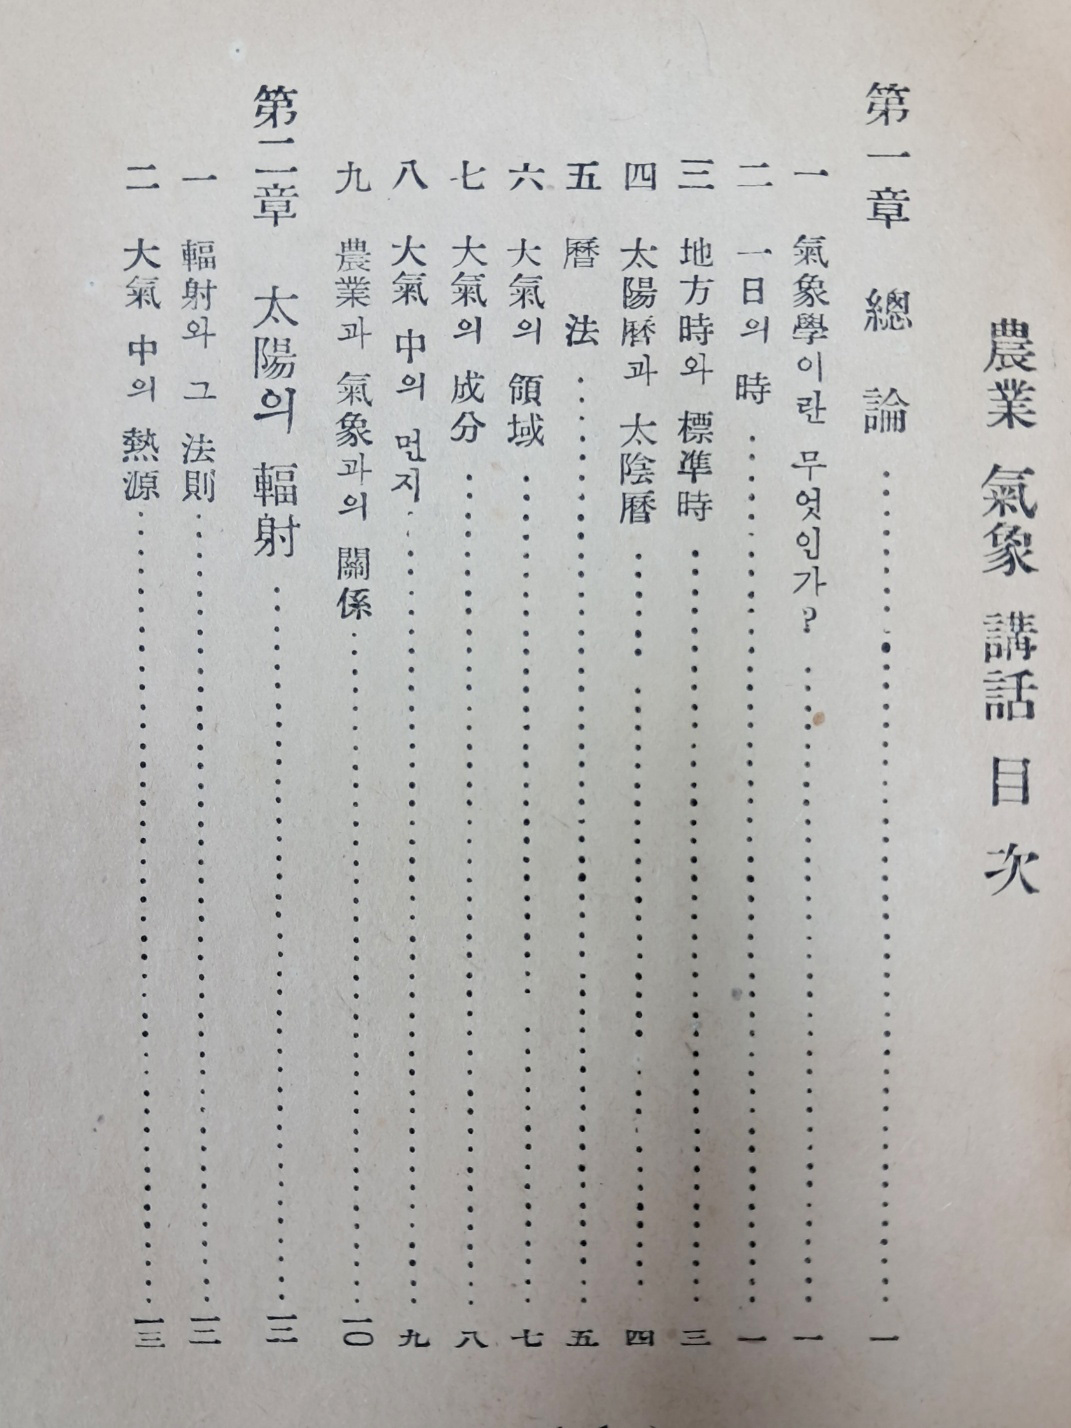 農業 氣象 講話 目 次
第一章 總 論 一
一 氣象學이란 무엇인가? 一
二 一日의 時 一
三 地方時와 標準時 三
四 太陽曆과 太陰曆 四
五 曆 法 五
六 大氣의 領域 七
七 大氣의 成分 八
八 大氣 中의 먼지 九
九 農業과 氣象과의 關係 一〇
第二章 太陽의 輻射 一二
一 輻射와 그 法則 一二
二 大氣 中의 熱源 一三